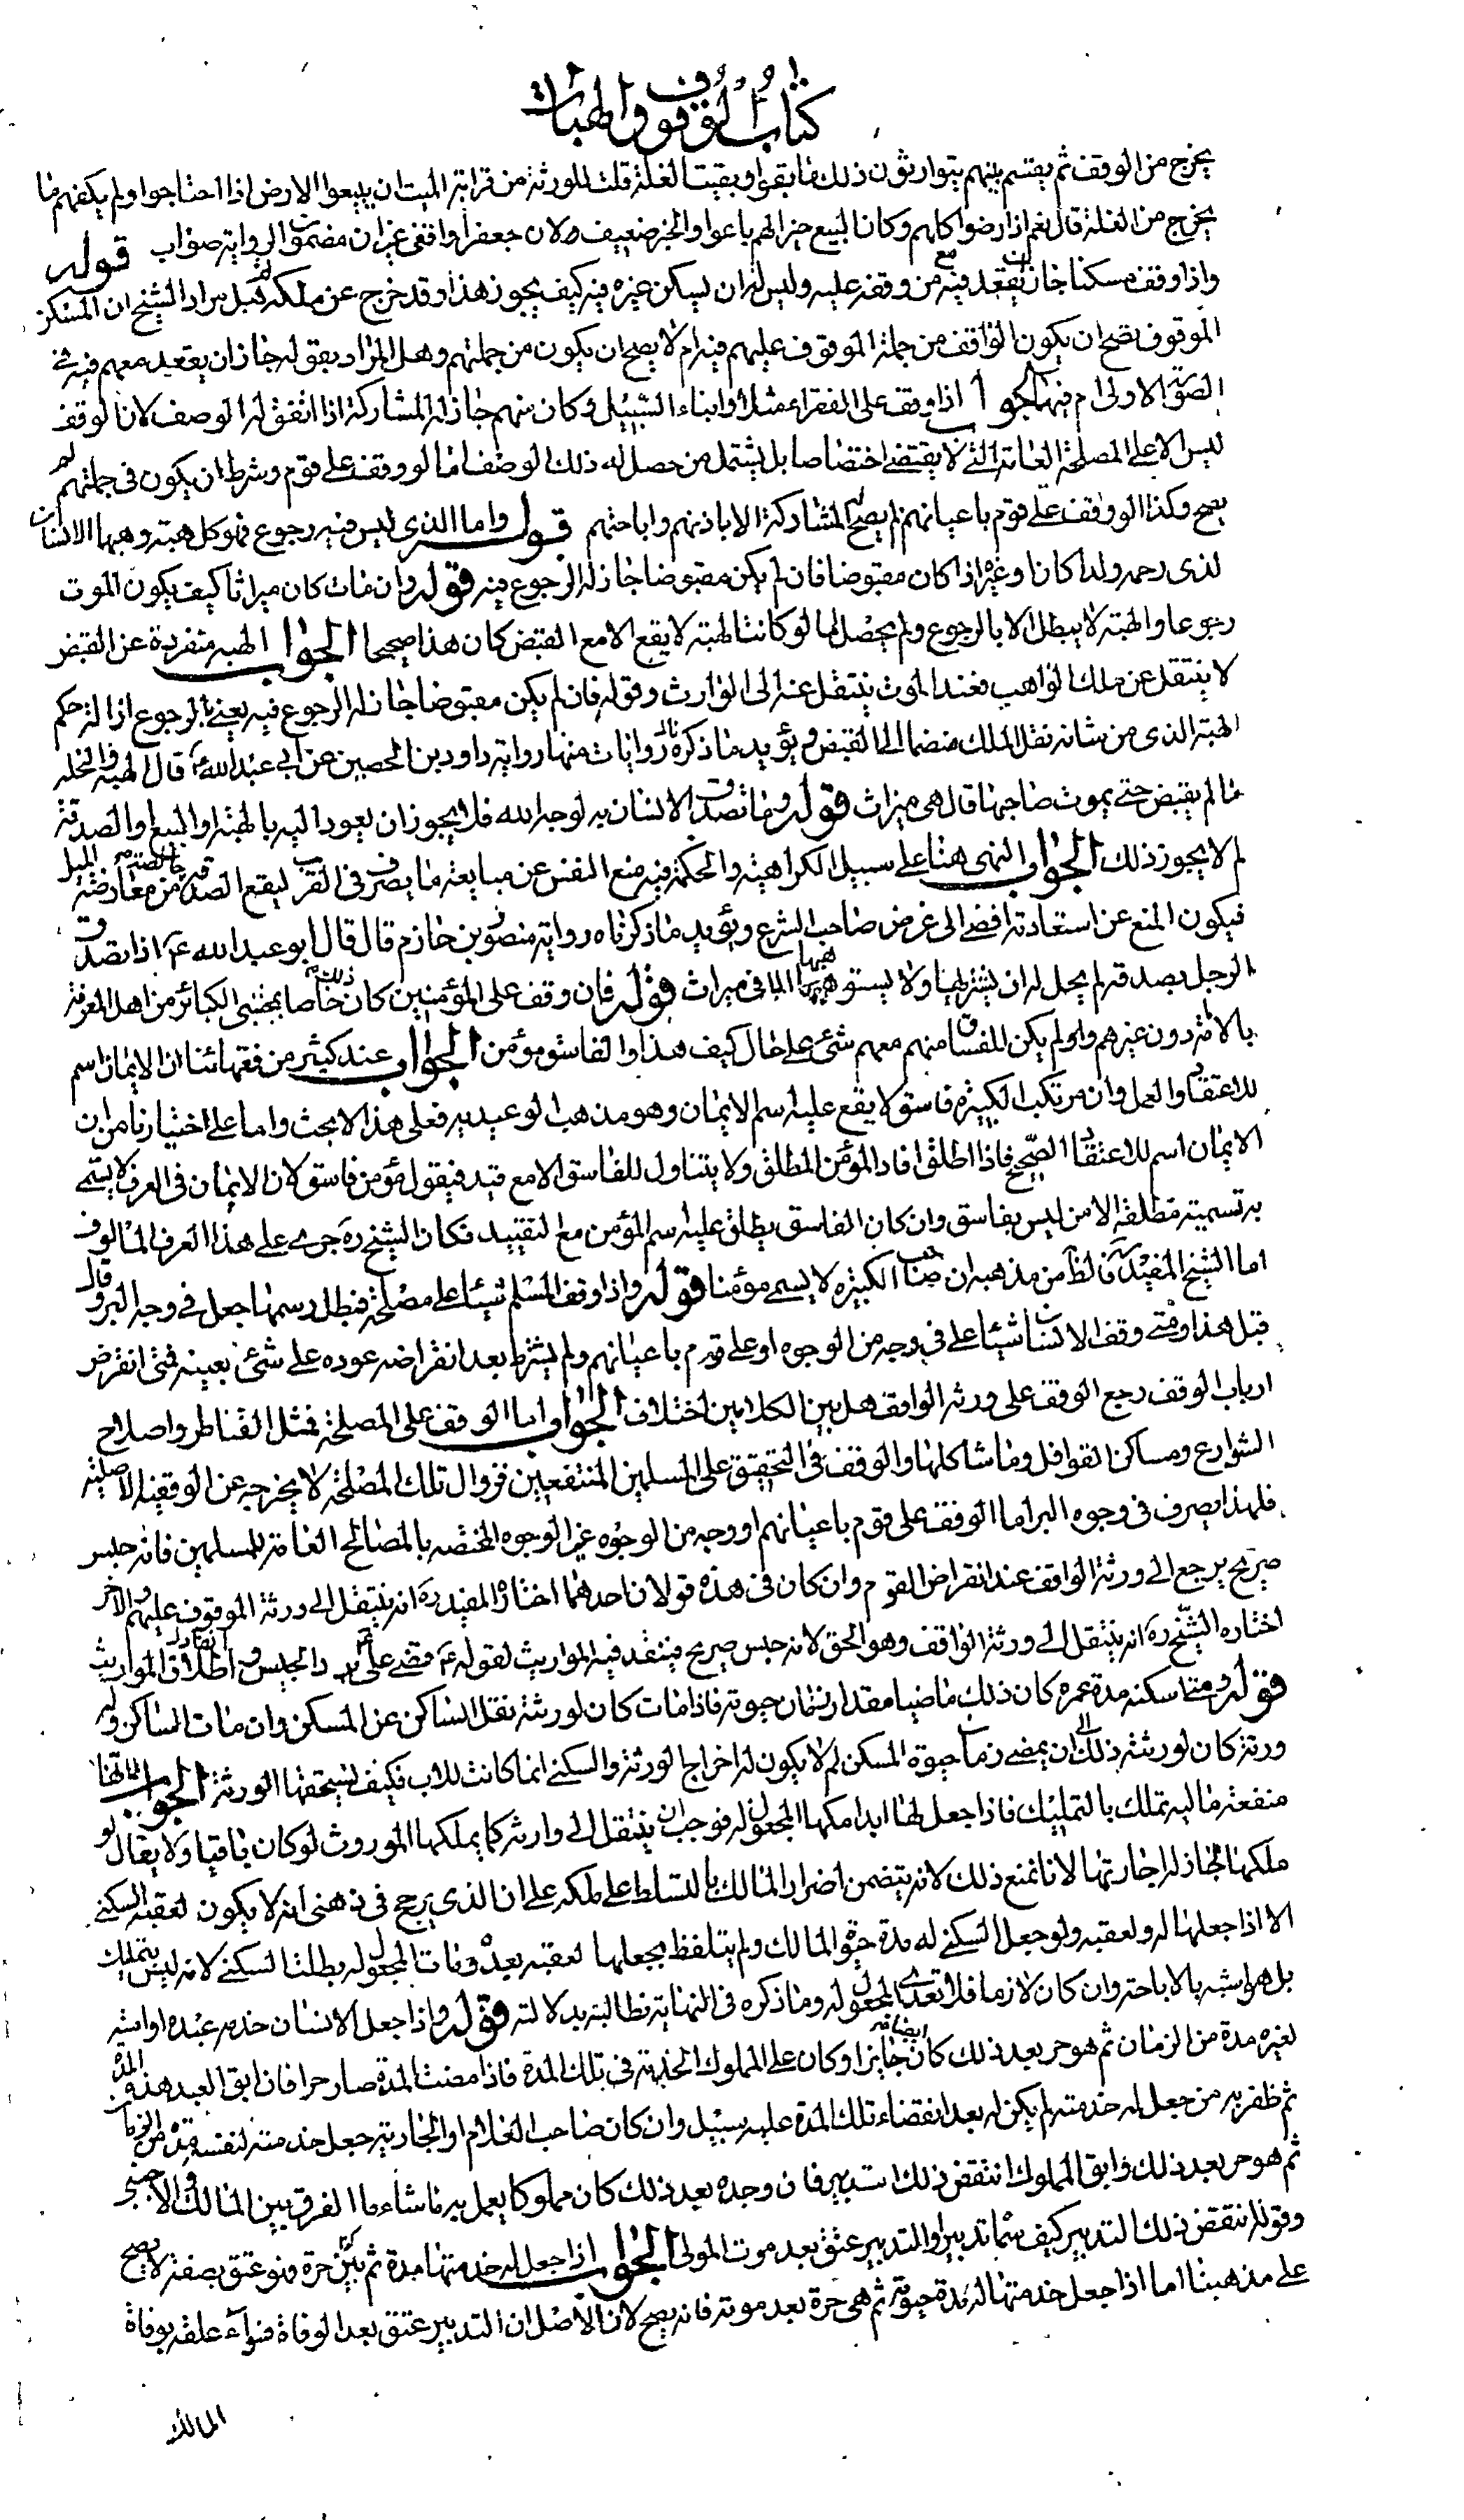 كتاب الوقوف والهبات
يخرج من الوقف ثم يقتسم بينهم يتوارثون ذلك ما بقوا وبقيت الغلة قلت للورثة من قرابة الميت ان يبيعوا الارض اذا احتاجوا ولم يكفهم ما
يخرج من الغلة قال نعم اذا رضوا كلهم وكان البيع خيرا لهم باعوا والخبر ضعيف ولان جعفرا واقفى غير ان مضمون الرواية صواب قوله
واذا وقف مسكنا جاز ان يقعد فيه مع من وقفه عليه وليس له ان يسكن غيره فيه كيف يجوز هذا وقد خرج عن ملكه ثم هل مراد الشيخ ان المسكن
الموقوف يصح ان يكون الواقف من جملة الموقوف عليهم فيه ام لا يصح ان يكون من جملتهم وهل المراد بقوله جاز ان يقعد معهم فيه في
الصورة الاولى ام فيهما الجواب اذا وقف على الفقراء مثلا او ابناء السبيل وكان منهم جاز له المشاركة اذا اتفق له الوصف لان الوقف
ليس الا على المصلحة العامة التي لا يقتضى اختصاصا بل يشتمل من حصل له ذلك الوصف اما لو وقف على قوم وشرط ان يكون في جملتهم لم
يصح وكذا لو وقف على قوم باعيانهم لم يصح له المشاركة الا باذنهم واباحتهم قوله واما الذى ليس فيه رجوع فهو كل هبة وهبها الانسان
لذى رحمه ولدا كان او غيره اذا كان مقبوضا فان لم يكن مقبوضا جاز له الرجوع فيه قوله وان مات كان ميراثا كيف يكون الموت
رجوعا والهبة لا يبطل الا بالرجوع ولم يحصل اما لو كانت الهبة لا يقع الا مع القبض كان هذا صحيحا الجواب الهبة متفردة عن القبض
لا ينتقل عن ملك الواهب فعند الموت ينتقل عنه الى الوارث وقوله فان لم يكن مقبوضا جاز له الرجوع فيه يعنى بالرجوع ازالة حكم
الهبة الذى من شانه نقل الملك منضما الى القبض ويؤيد ما ذكرناه روايات منها رواية داود بن الحصين عن ابي عبد الله ع قال الهبة والنحلة
ما لم يقبض حتى يموت صاحبها قال هى ميراث قوله وما تصدق الانسان به لوجه الله فلا يجوز ان يعود اليه بالهبة او البيع او الصدقة
لم لا يجوز ذلك الجواب والنهى هنا على سبيل الكراهية والحكمة فيه منع النفس عن متابعة ما يصرف في القرب ليقع الصدقة من معارضة الميل
فيكون المنع عن استعادته افضى الى غرض صاحب الشرع ويؤيد ما ذكرناه رواية منصور بن حازم قال قال ابو عبد الله ع اذا تصدق
الرجل بصدقة لم يحل له ان يشتريها ولا يستوهبها الا في ميراث قوله فان وقف على المؤمنين كان ذلك خاصا بمجتنبى الكبائر من اهل المعرفة
بالائمة دون غيرهم ولم يكن للفساق منهم معهم شئ على حال كيف هذا والفاسق مؤمن الجواب عند كثير من فقهائنا ان الايمان اسم
للاعتقاد والعمل وان مرتكب الكبيرة فاسق لا يقع عليه اسم الايمان وهو مذهب الوعيدية فعلى هذا لا بحث واما على اختيارنا من ان
الايمان اسم للاعتقاد الصحيح فاذا اطلق افاد المؤمن المطلق ولا يتناول للفاسق الا مع قيد فيقول مؤمن فاسق لان الايمان في العرف لا يسمى
به تسمية مطلقة الا من ليس بفاسق وان كان الفاسق يطلق عليه اسم المؤمن مع التقييد فكان الشيخ ره جرى على هذا العرف المالوف
اما الشيخ المفيد ره فالظ من مذهبه ان صاحب الكبيرة لا يسمى مؤمنا قوله واذا وقف المسلم شيئا على مصلحة فبطل رسمها جعل في وجه البر وقال
قبل هذا ومتى وقف الانسان شيئا على في وجه من الوجوه او على قوم باعيانهم ولم يشترط بعد انقراضه عوده على شئ بعينه فمتى انقرض
ارباب الوقف رجع الوقف على ورثة الواقف هل بين الكلامين اختلاف الجواب اما الوقف على المصلحة فمثل القناطر واصلاح
الشوارع ومساكن القوافل وما شاكلها والوقف في التحقيق على المسلمين المنتفعين فزوال تلك المصلحة لا يخرجه عن الوقفية الاصلية
فلهذا يصرف في وجوه البر اما الوقف على قوم باعيانهم او وجه من الوجوه غير الوجوه المختصه بالمصالح العامة للمسلمين فانه حبس
صريح يرجع الى ورثة الواقف عند انقراض القوم وان كان في هذه قولان احدهما اختاره المفيد ره انه ينتقل الى ورثة الموقوف عليهم والاخر
اختاره الشيخ ره انه ينتقل الى ورثة الواقف وهو الحق لانه حبس صريح فينفذ فيه المواريث لقوله ع قضى على ع برد الحبيس وانفاذ المواريث
قوله ومتى اسكنه مدة عمره كان ذلك ماضيا مقدار زمان حيوته فاذا مات كان لورثته نقل الساكن عن المسكن وان مات الساكن وله
ورثة كان لورثته ذلك الى ان يمضى زمان حيوة المسكن لم لا يكون له اخراج الورثة والسكنى انما كانت للاب فكيف يستحقها الورثة الجواب
منفعة مالية تملك بالتمليك فاذا جعل لها ابدا ملكها المجعول له فوجب ان ينتقل الى وارثه كما يملكها الموروث لو كان باقيا ولا يقال لو
ملكها لجاز له اجارتها لانا نمنع ذلك لانه يتضمن اضرار المالك بالتسلط على ملكه على ان الذي يرجح في ذهنى انه لا يكون لعقبه السكنى
الا اذا جعلها له ولعقبه ولو جعل السكنى له مدة حيوة المالك ولم يتلفظ بجعلها لعقبه بعده ومات المجعول له بطلت السكنى لانه ليس بتمليك
بل هو اشبه بالاباحة وان كان لازما فلا تتعدى المجعول له وما ذكره في النهاية نطالبه بدلالته قوله واذا جعل الانسان خدمة عبده او امته
لغيره مدة من الزمان ثم هو حر بعد ذلك كان ايضا جايزا وكان على المملوك الخدمة في تلك المدة فاذا مضت المدة صار حرا فان ابق العبد هذه المدة
ثم ظفر به من جعل له خدمته لم يكن له بعد انقضاء تلك المدة عليه سبيل وان كان صاحب الغلام او الجارية جعل خدمته لنفسه مدة من الزمان
ثم هو حر بعد ذلك وابق المملوك انتقض ذلك التدبير فان وجده بعد ذلك كان مملوكا يعمل به ما شاء ما الفرق بين المالك والاجنبى
وقوله انتقض ذلك التدبير كيف سماه تدبيرا والتدبير عتق بعد موت المولى الجواب اذا جعل له خدمتها مدة ثم هى حرة فهو عتق بصفة لا يصح
على مذهبنا اما اذا جعل خدمتها له مدة حيوته ثم هى حرة بعد موته فانه يصح لان الاصل ان التدبير عتق بعد الوفاة فسواء علقه بوفاة
المالك